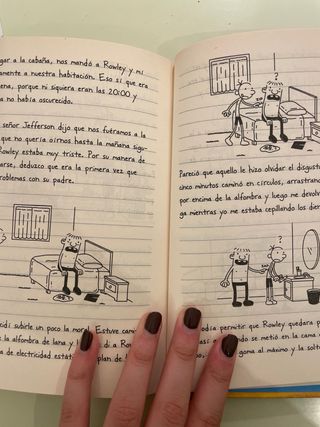 gar a la cabaña, nos mandó a Rowley y mí
amente a nuestra habitación. Eso sí que era
ena, porque ni siquiera eran las 20:00 y
a no había oscurecido.
señor Jefferson dijo que nos fuéramos a la
que no quería oírnos hasta la mañana sigu-
Rowley estaba muy triste. Por su manera de
arse, deduzco que era la primera vez que
roblemas con su padre.
cidí subirle un poco la moral. Estuve cami
la alfombra de lana y di a Ro
a de electricidad está plan de
?
Pareció que aquello le hizo olvidar el disgust
cinco minutos caminó en círculos, arrastran
por encima de la alfombra y luego me devol
ga mientras yo me estaba cepillando los dien
?
odía permitir que Rowley quedara p
así cuando se metió en la cama
goma al máximo y la solt